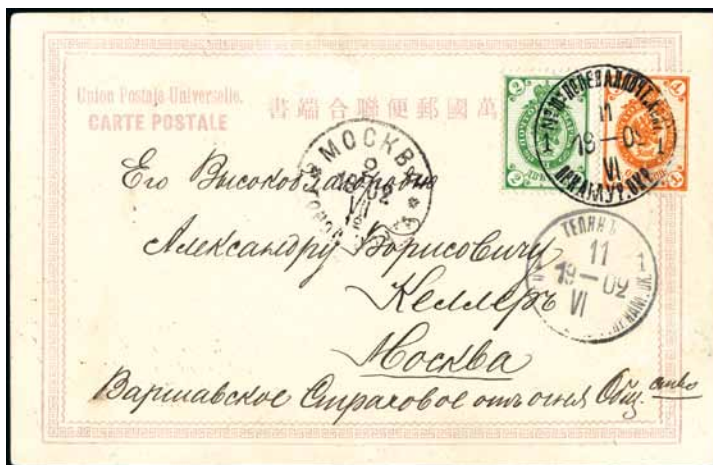 Union Postale Universelle.
CARTE POSTALE
書端合聯便郵國萬
2 2
МОСКВА
1902
VI
11
19—02
VI
ТЕЛИНЪ
11
19—02
VI
1
Его Высокоблагородію
Александру Борисовичу
Келлеръ
Москва
Варшавское Страховое отъ огня Общ.ство